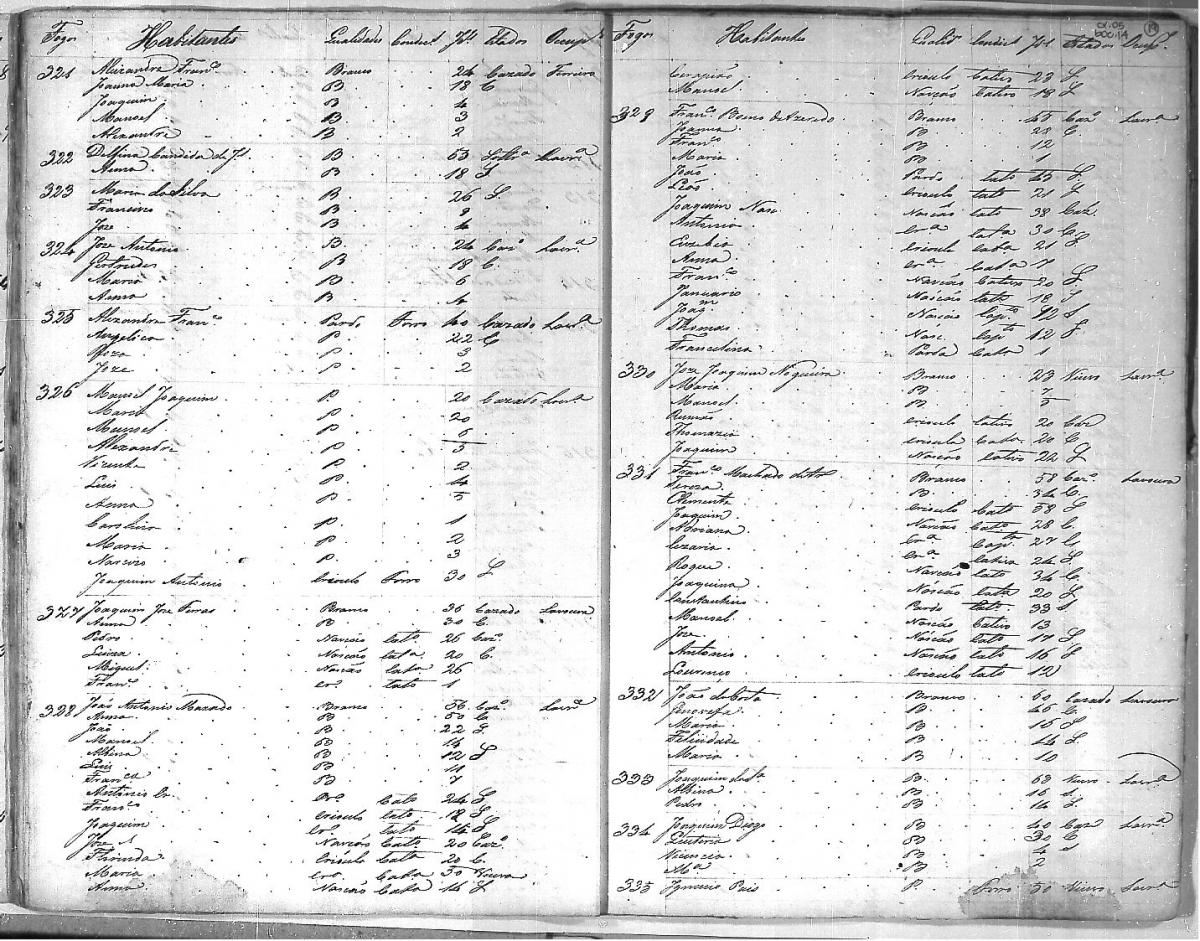 Fogos Habitantes Qualidades Condict Id. Estados Occup.
321 Alexandre Fran.co Branco 24 Cazado Ferreiro
Joanna Maria B 18 C
Joaquim B 4
Manoel B 3
Alexandre B 2
322 Delfina Candida de J. B 53 Lavr.a
Anna B 18 S
323 Maria da Silva B 26 S.
Francisco B 9
Joze B 4
324 Joze Antonio B. 24 Caz.o Lavr.a
Gertrudes B 18 C.
Maria B 6
Anna B 4
325 Alexandre Fran.co Pardo Forro 40 Cazado Lavr.a
Angelica P. 22 C
P. 3
Joze P. 2
326 Manoel Joaquim P 20 Cazado Lavr.a
Maria P 20
Manoel P. 6
Alexandre P. 5
Vizencia P. 2
Luis P. 4
Anna P. 5
Carolina P. 1
Maria P. 2
Narcizo P. 3
Joaquim Antonio Crioulo Forro 30 S
327 Joaquim Joze Ferras Branco 36 Cazado Lavoura
Anna B 30 C.
Pedro Nascão Cat.o 26 Caz.o
Luiza Nascão Cata 20 C.
Miguel Nascão Cata 26
Fran.co Cr.o Cato 1
328 João Antonio Mazado Branco 56 Caz.o Lavr.a
Anna B 50 C
João B 22 S.
Manoel B 14
Albina B 12 S
Luis B 11
Fran.ca B 7
Antonio Cr. Cr.o Cato 24 S
Fran.co Crioulo Cato 18 S
Joaquim Cr.o Cato 14 S
Joze Nascão Cato 20 Caz.o
Florinda Crioulo Cat.a 20 C.
Maria Cr.o Cata 50 Viuva
Anna Nascão Cata 14 S.
Fogos Habitantes Qualid. Condict Id. Estados Occup.
Serapião Crioulo Cativo 23 S
Manoel Nascão Cativo 18 S
329 Fran.co Bueno de Azeredo Branco 45 Caz.o Lavr.a
Joanna B 28 C
Fran.co B 12
Maria B 1
João Pardo Cato 25 S.
Crioulo Cat 21 S
Joaquim Nasc. Nascão Cato 38 Caz.
Antonia Cr.a Cata 30 C.
Euzebio Crioul Cato 21 S
Anna Cr.a Cata 7
Fran.co Nascão Cativo 20 S
Januario Nascão Cato 18 S
Joaq.m Nascão Cap.to 12 S
Thomas Nasc. Cap.to 12 S
Francelina Parda Cata 1
330 Joze Joaquim Nogueira Branco 23 Viuvo Lavr.a
Maria B 7
Manoel B 5
Crioulo Cativo 20 Caz
Thomazia Crioula Cata 20 C
Joaquim Nascão Cativo 22 S
331 Fran.co Machado Branco 58 Caz.o Lavoura
Tereza B. 34 C.
Clemente Crioulo Cato 58 S
Joaquim Nascão Cato 28 C.
Adriana Cr.a Cap.ta 27 C
Cezaria Cr.a Cativa 24 S
Roque Nascão Cato 34 C
Joaquina Nascão Cata 20 S
Constantino Pardo Cato 33 S
Manoel Nascão Cativo 13
Joze Nascão Cato 17 S
Antonio Nascão Cato 16 S
Lourenço Crioulo Cato 12
332 João da Costa Branco 60 Cazado Lavoura
Genovefa B. 46 C.
Maria B 16 S
Felicidade B 14 S.
Maria B 10
333 Joaquim da S.a B. 63 Viuvo Lavr.a
Albina B 16 S
Pedro B 14 S
334 Joaquim Diogo B 40 Caz Lavr.a
B 30 C
Vicencia B 4
M.a B 2
335 Ignacio Pais P. Forro 50 Viuvo Lavr.a